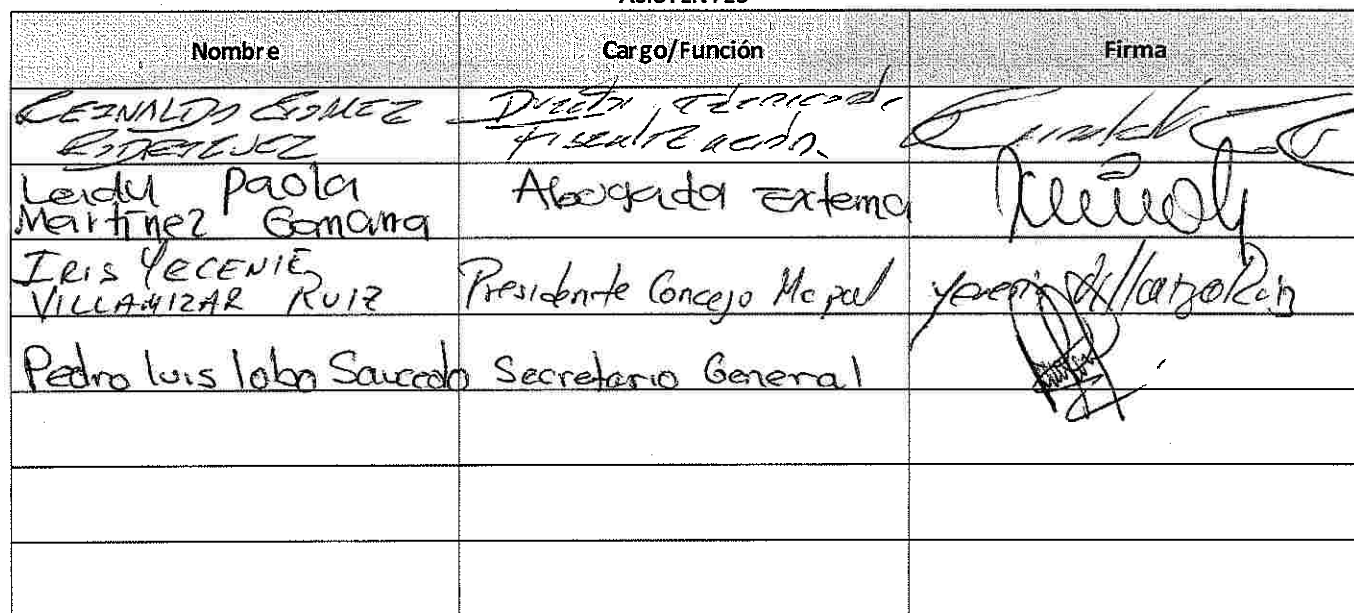 ASISTENTES
Nombre Cargo/Función Firma
REINALDO GOMEZ Director técnico de
RODRIGUEZ Fiscalización.
Leidy Paola Abogada Externa
Martinez Gamarra
IRIS YECENIE
VILLAMIZAR RUIZ Presidente Concejo Mcpal
Pedro luis lobo Saucedo Secretario General